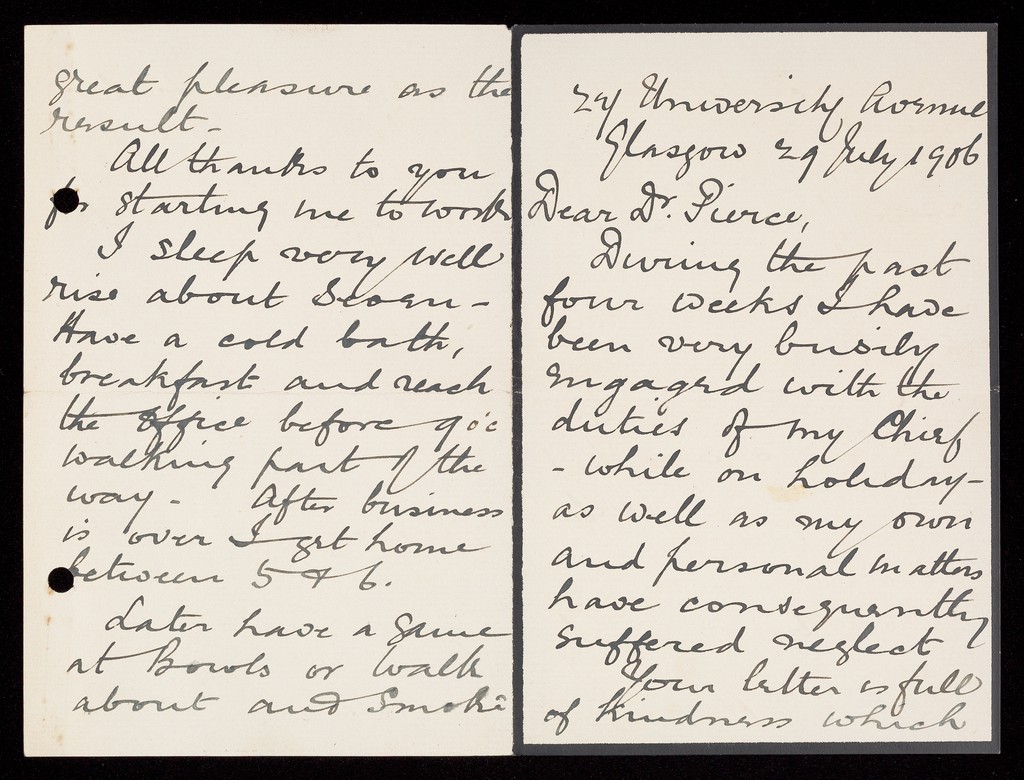 27 University Avenue
Glasgow 29 July 1906
Dear Dr. Pierce,
During the past
four weeks I have
been very busily
engaged with the
duties of my Chief
- while on holiday -
as well as my own
and personal matters
have consequently
suffered neglect
Your letter is full
of kindness which
great pleasure as the
result -
All thanks to you
for starting me to work
I sleep very well
rise about seven -
Have a cold bath,
breakfast and reach
the office before 9 o'c
walking part of the
way - After business
is over I get home
between 5 & 6.
Later have a game
at Bowls or walk
about and smoke